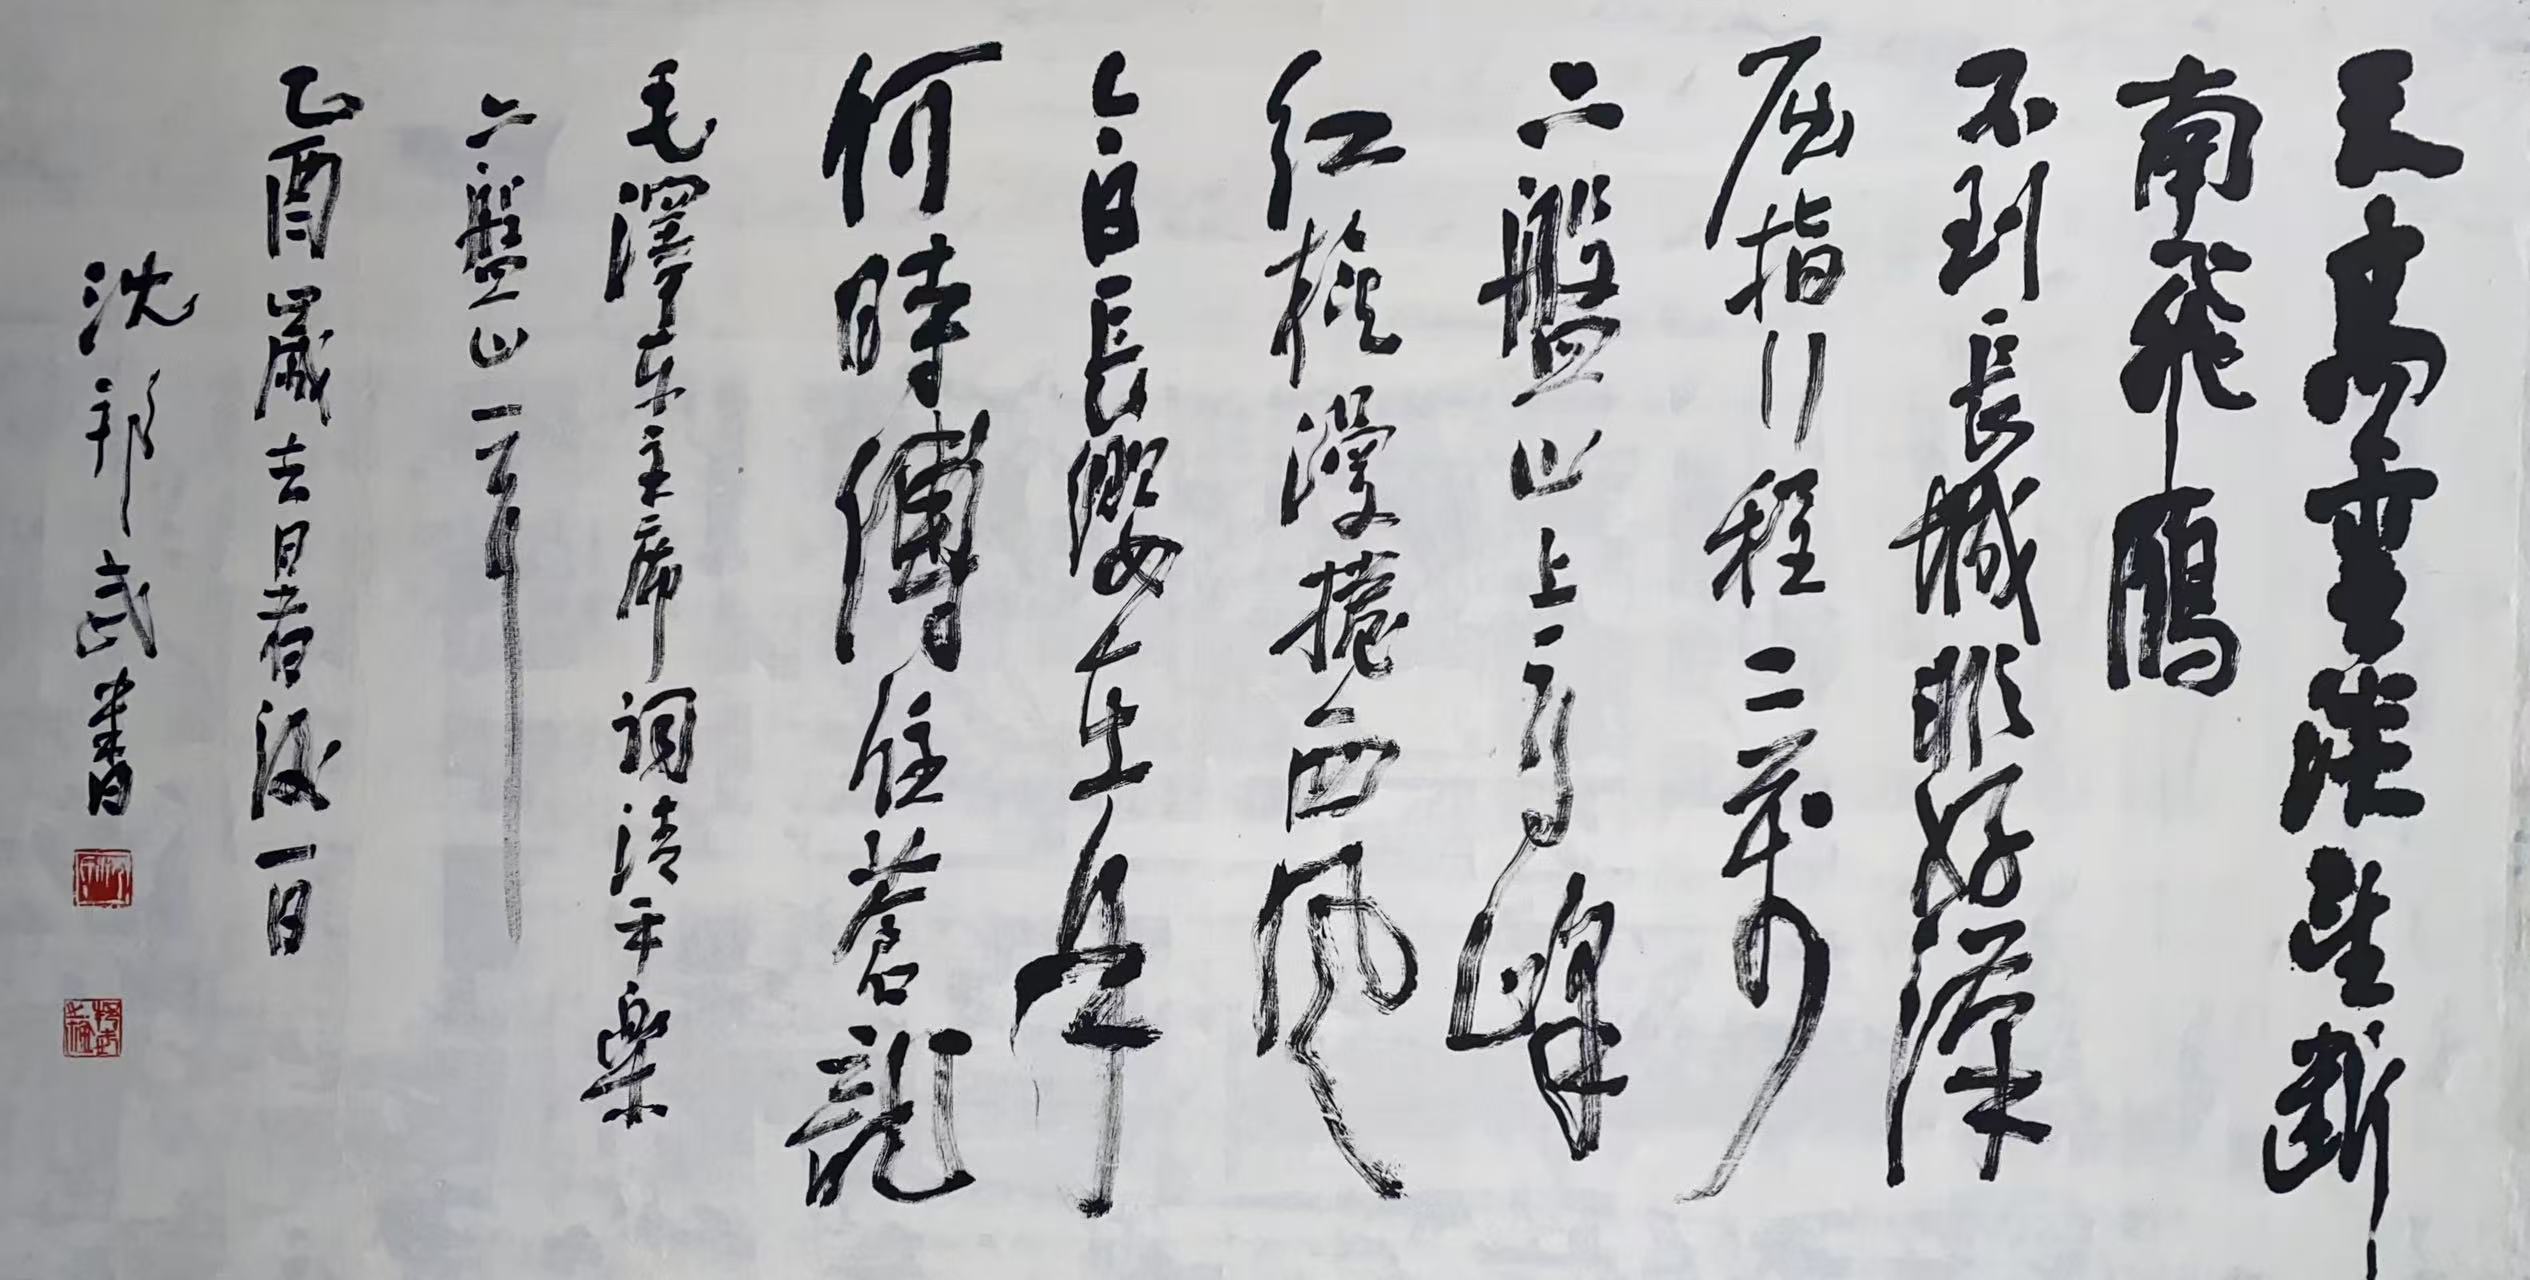 天高雲淡望斷
南飛鴈
不到長城非好漢
屈指行程二萬
六盤山上高峰
紅旗漫捲西風
今日長纓在手
何時縛住蒼龍
毛澤東主席詞清平樂
六盤山一首
乙酉歲大暑後一日
沈邦武書